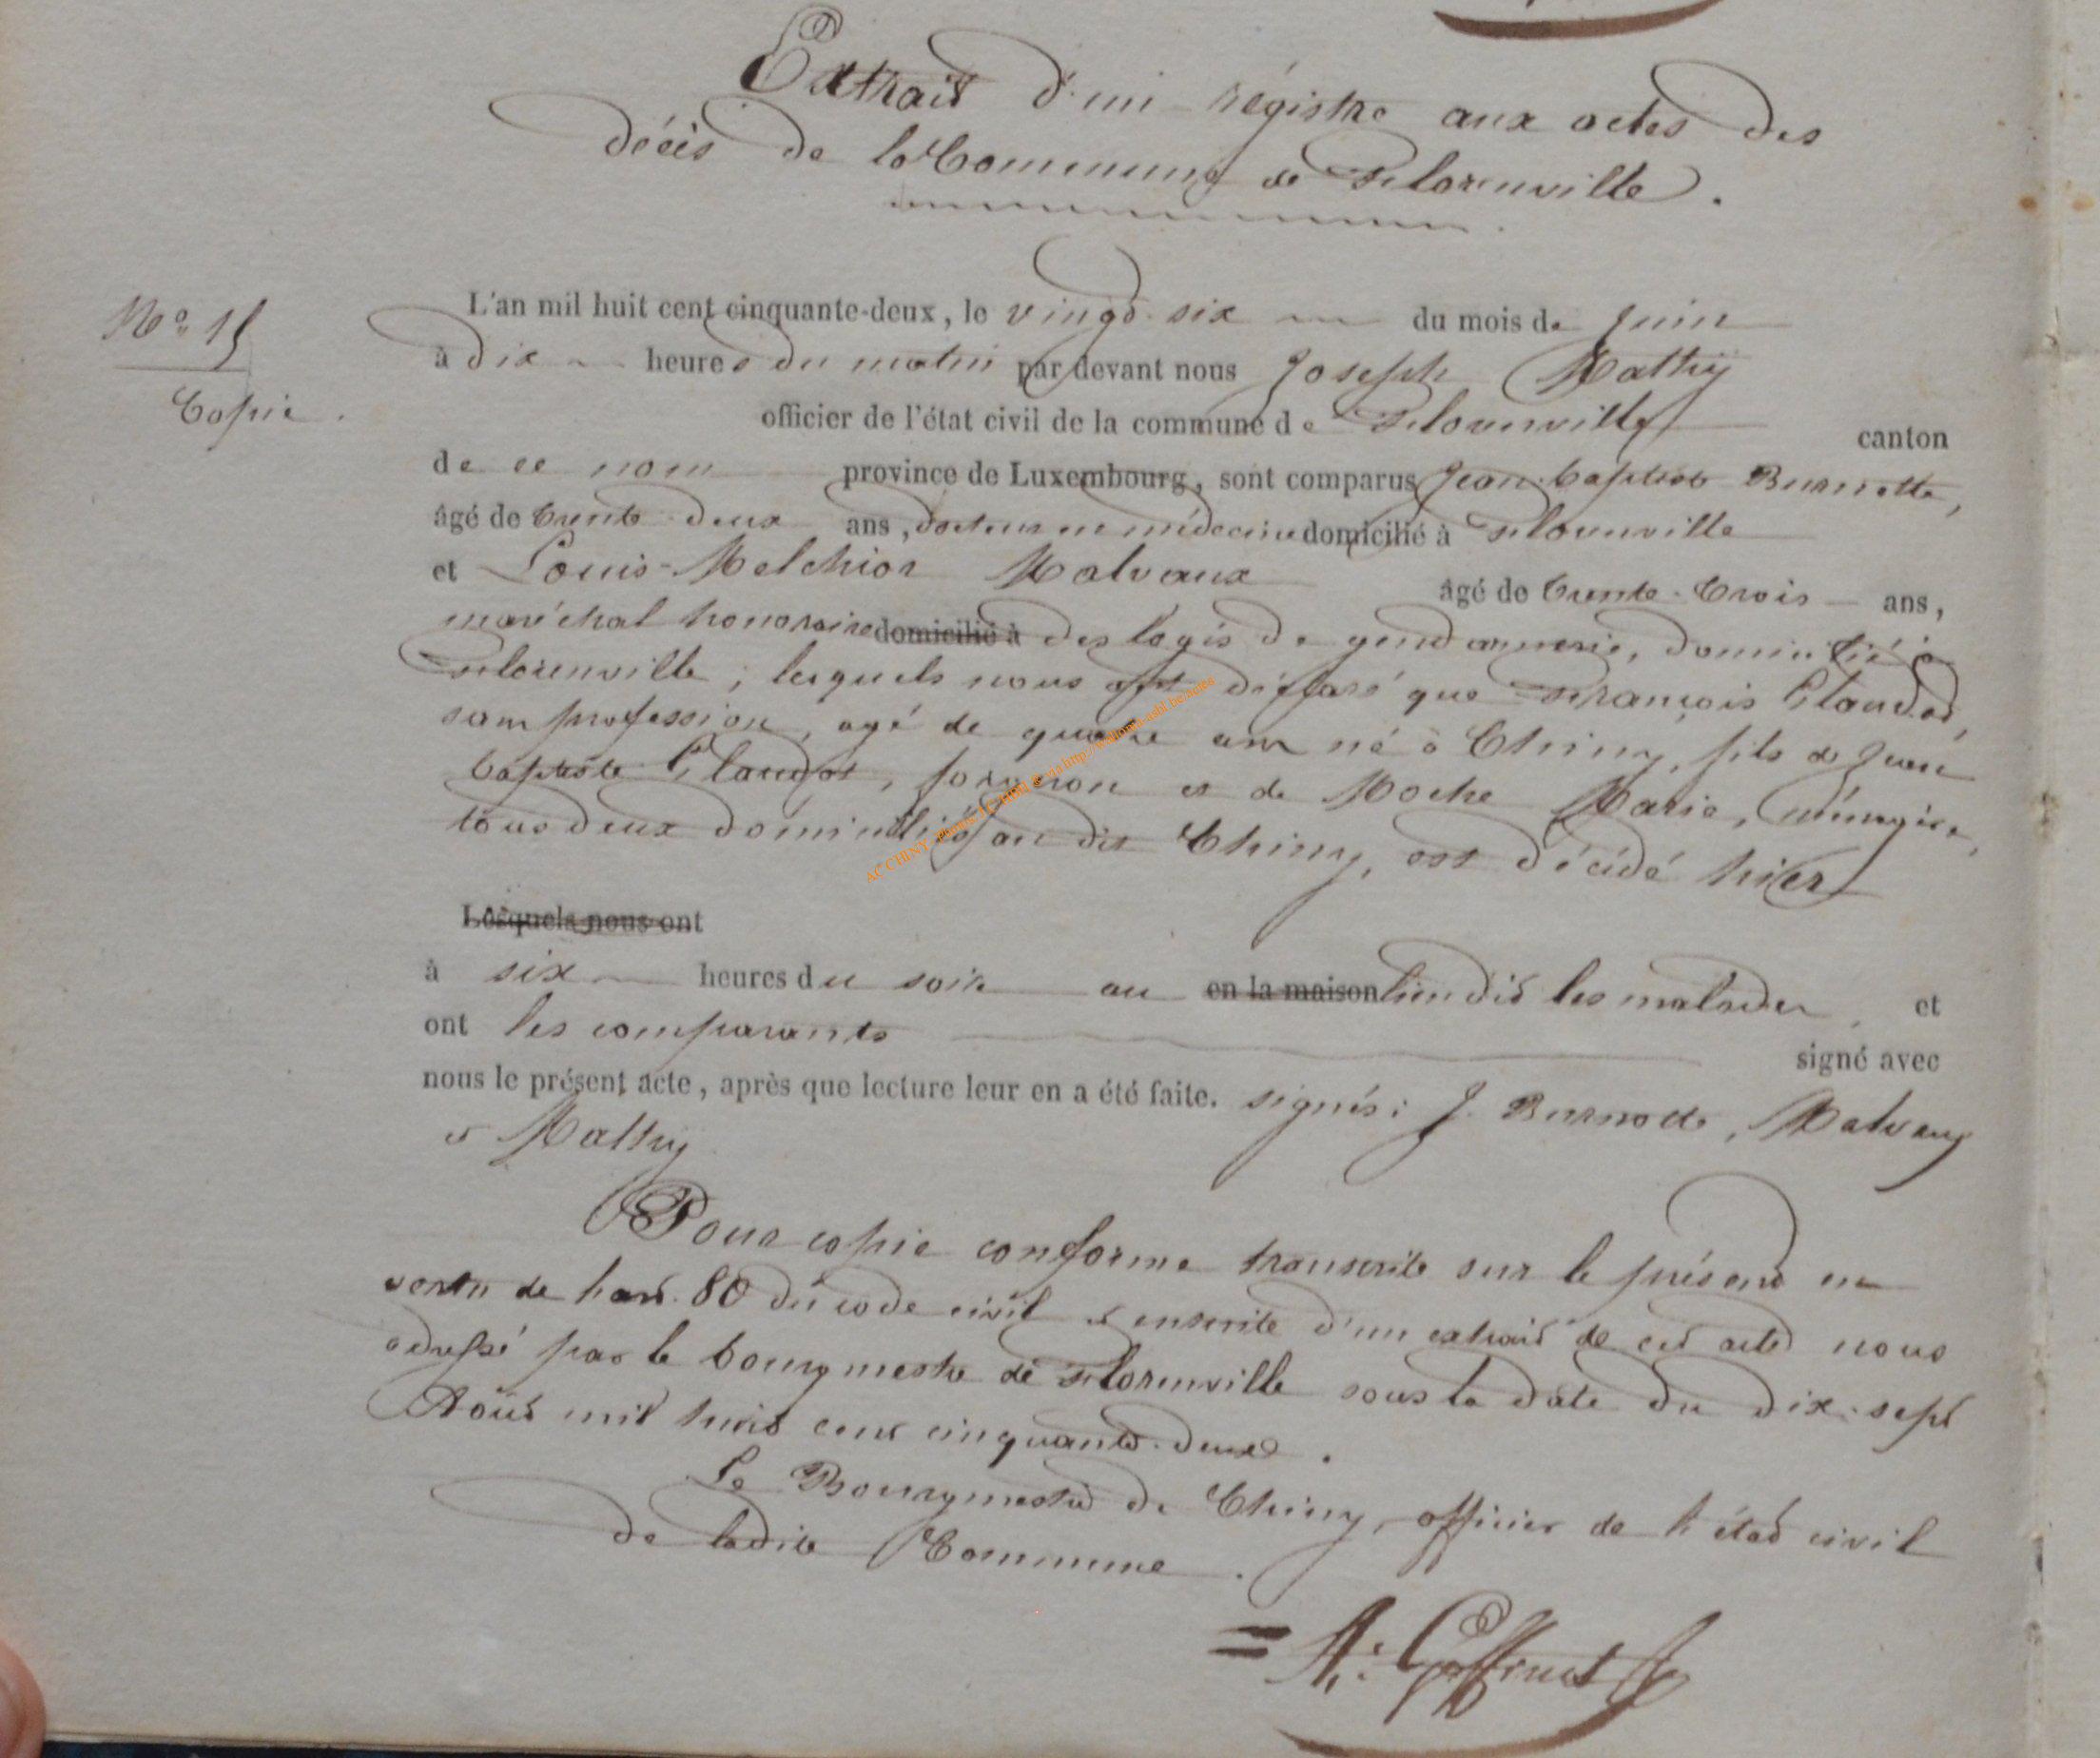 Extrait d'un régistre aux actes des
décès de la Commune de Florenville.
L'an mil huit cent cinquante-deux, le vingt-six du mois de Juin
N° 15
à dix heures du matin par devant nous Joseph Mathy
Copie.
officier de l'état civil de la commune de Florenville canton
de ce nom province de Luxembourg, sont comparus Jean-baptiste Burnotte,
âgé de trente-deux ans, docteur en médecine domicilié à Florenville
et Louis-Melchior Malvaux âgé de trente-trois ans,
maréchal honoraire domicilié à des logis de gendarmerie, domicilié à
Florenville; lesquels nous ont déclaré que François Claudot,
sans profession, agé de quatre ans né à Chiny, fils de Jean
baptiste Claudot, forgeron et de Marie, ménagère,
tous deux domiciliés au dit Chiny, est décédé hier
Lesquels nous ont
à six heures du soir au en la maison lieu dit les malades, et
ont les comparants signé avec
nous le présent acte, après que lecture leur en a été faite. signés: J. Burnotte, Malvaux
et Mathy
Pour copie conforme transcrite sur le présent en
vertu de l'art. 80 du code civil et ensuite d'un extrait de cet acte nous
adressé par le bourgmestre de Florenville sous la date du dix-sept
Août mil huit cent cinquante-deux.
Le Bourgmestre de Chiny, officier de l'état civil
de ladite Commune.
= A: Goffinet